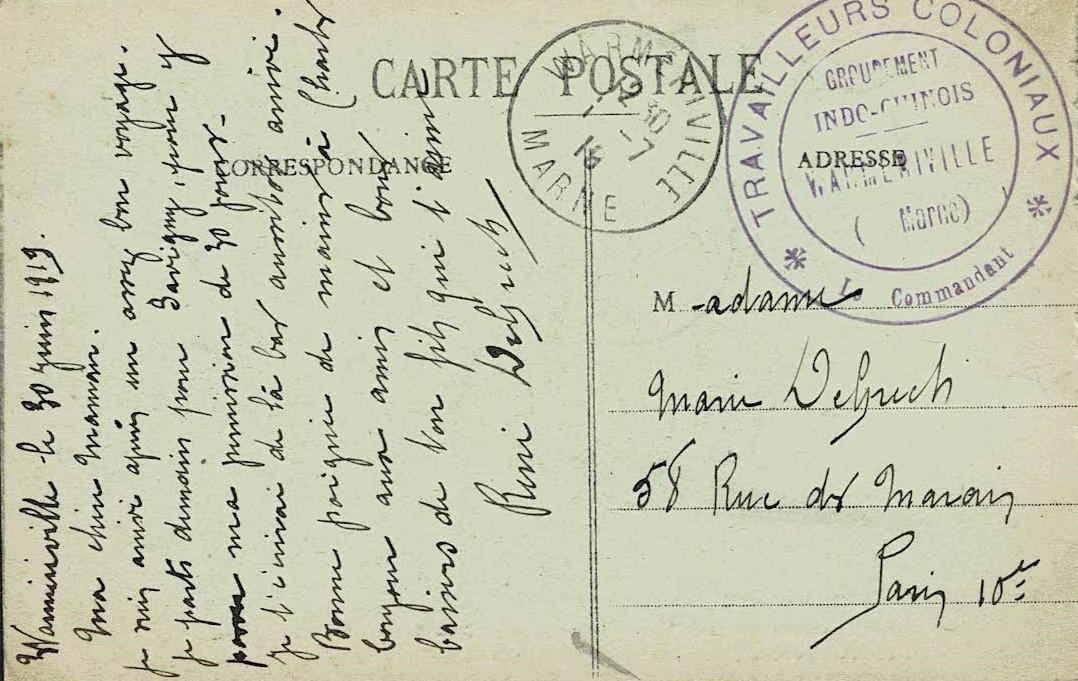 CARTE POSTALE
CORRESPONDANCE
ADRESSE
WARMERIVILLE
12 30
1 - 7
19
MARNE
TRAVAILLEURS COLONIAUX
GROUPEMENT
INDO-CHINOIS
WARMERIVILLE
( Marne)
Le Commandant
Warmeriville le 30 juin 1919.
Ma chère Maman.
Je suis arrivé après un assez bon voyage.
Je parts demain pour Savigny, pour y
ma permission de 30 jours.
Je t'écrirai de là bas aussitôt arrivé.
Bonne poignée de mains à Charles
bonjour aux amis et bons
baisers de ton fils qui t'aime
René
Madame
Marie
58 Rue des Marais
Paris 10e